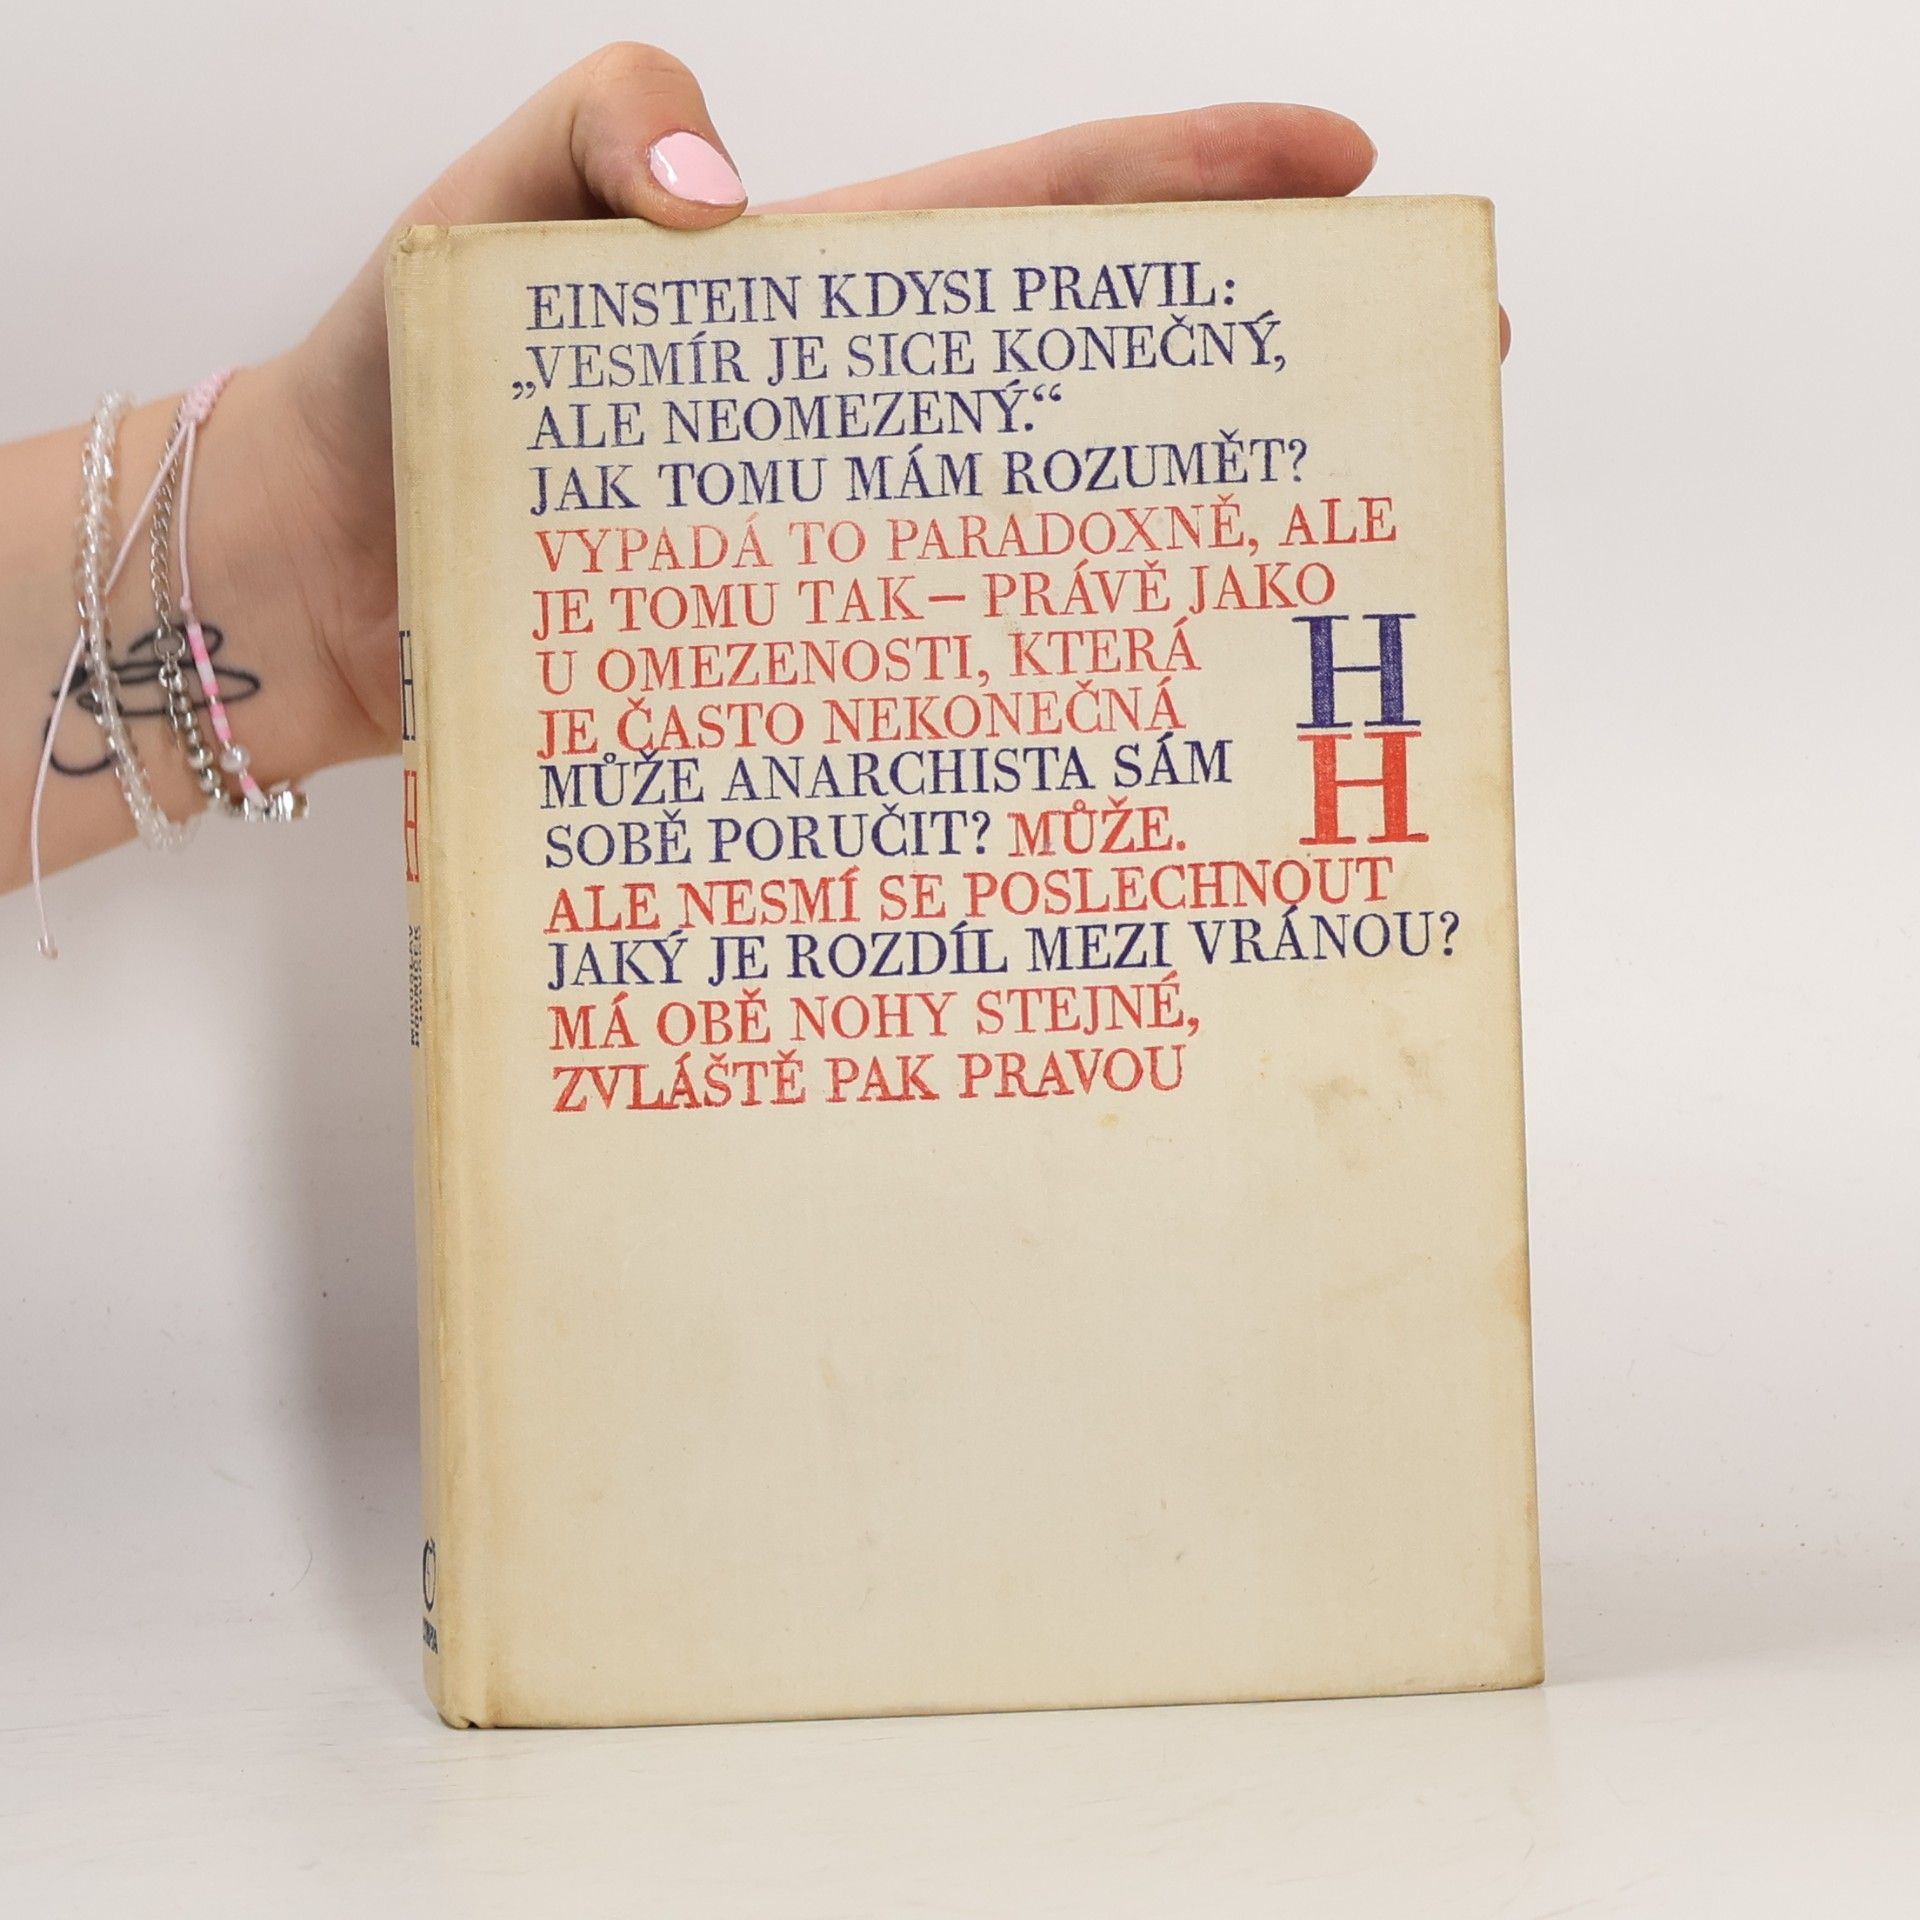 EINSTEIN KDYSI PRAVIL:
„VESMÍR JE SICE KONEČNÝ,
ALE NEOMEZENÝ.“
JAK TOMU MÁM ROZUMĚT?
VYPADÁ TO PARADOXNĚ, ALE
JE TOMU TAK – PRÁVĚ JAKO
U OMEZENOSTI, KTERÁ
JE ČASTO NEKONEČNÁ
MŮŽE ANARCHISTA SÁM
SOBĚ PORUČIT? MŮŽE.
ALE NESMÍ SE POSLECHNOUT
JAKÝ JE ROZDÍL MEZI VRÁNOU?
MÁ OBĚ NOHY STEJNÉ,
ZVLÁŠTĚ PAK PRAVOU
H
H
H
H